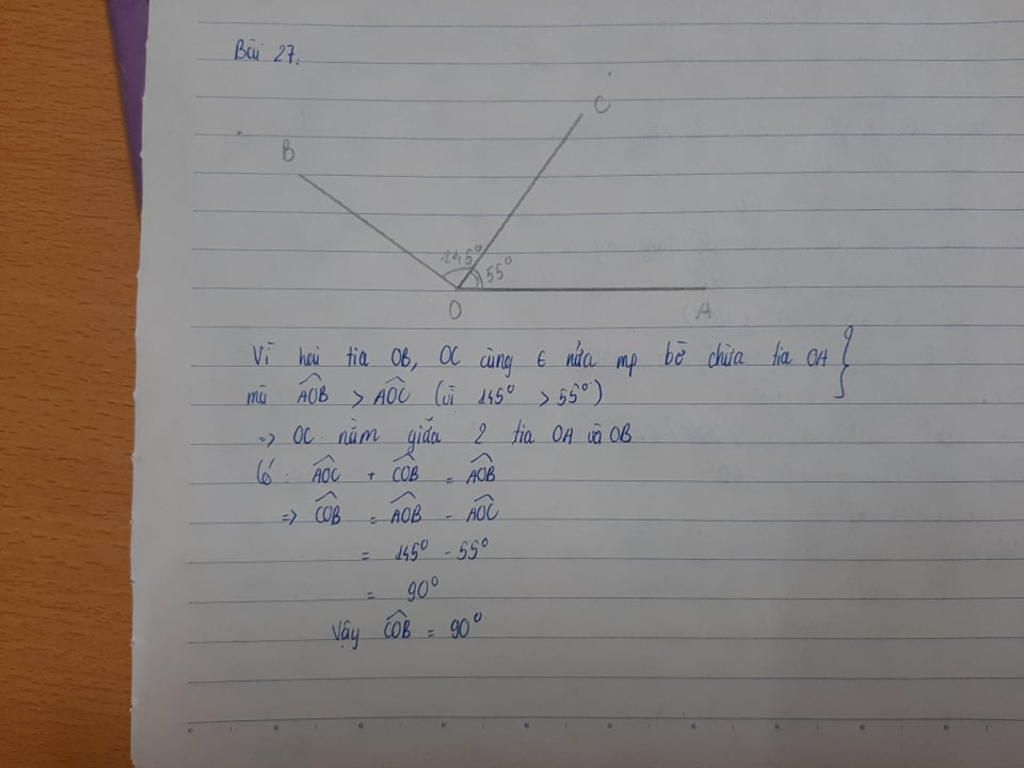 Bài 27.
C
B
145° 55°
O A
Vì hai tia OB, OC cùng ∈ nửa mp bờ chứa tia OA }
mà \widehat{AOB} > \widehat{AOC} (vì 145° > 55°)
=> OC nằm giữa 2 tia OA và OB
Có: \widehat{AOC} + \widehat{COB} = \widehat{AOB}
=> \widehat{COB} = \widehat{AOB} - \widehat{AOC}
= 145° - 55°
= 90°
Vậy \widehat{COB} = 90°